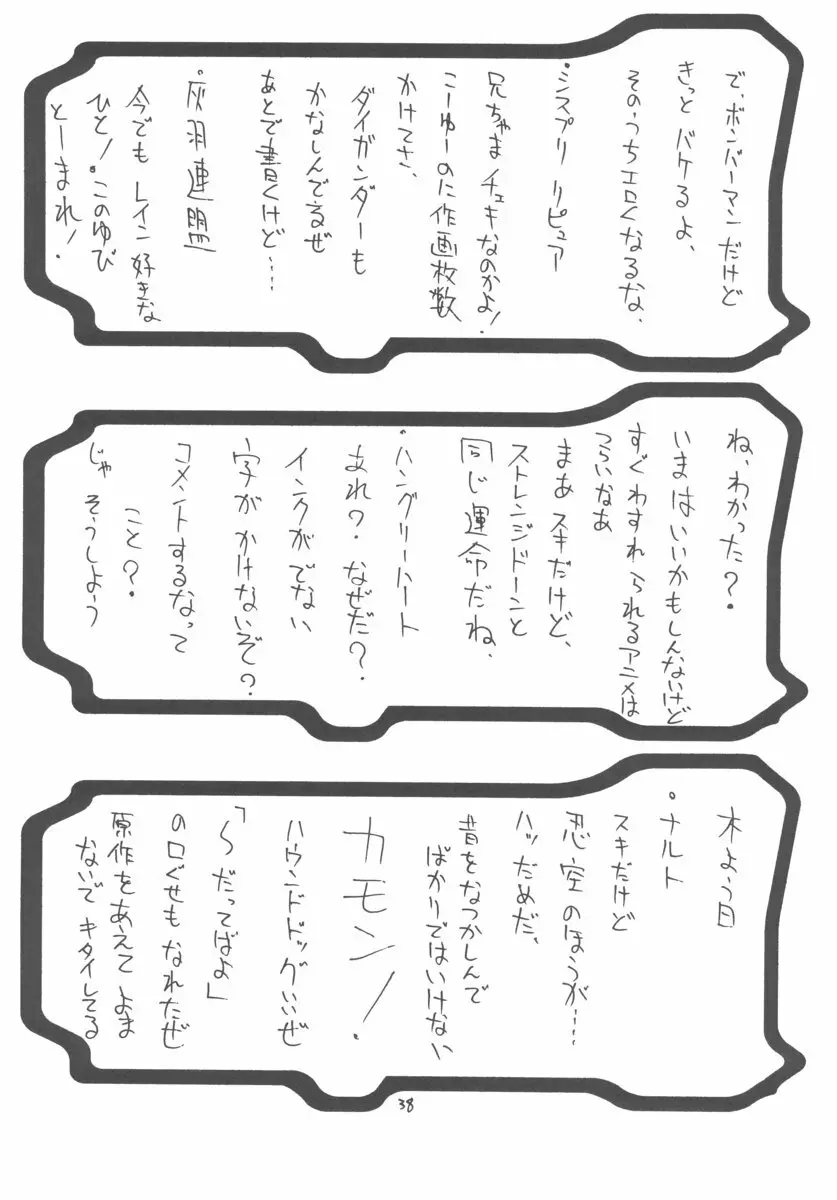 で、ボンバーマンだけど
きっとバケるよ、
そのうちエロくなるな、
・シスプリ リピュア
兄ちゃまチェキなのかよ!
こーゆーのに作画枚数
かけてさ、
ダイガンダーも
かなしんでるぜ
あとで書くけど…
・灰羽連盟
今でもレイン好きな
ひと!このゆび
とーまれ!
ね、わかった?
いまはいいかもしんないけど
すぐわすれられるアニメは
つらいなあ
まあスキだけど、
ストレンジドーンと
同じ運命だね、
・ハングリーハート
あれ?なぜだ?
インクがでない
字がかけないぞ?
コメントするなって
こと?
じゃそうしよう
木よう日
・ナルト
スキだけど
忍空のほうが…
ハッだめだ、
昔をなつかしんで
ばかりではいけない
カモン!
ハウンドドッグいいぜ
「〜だってばよ」
の口ぐせもなれたぜ
原作をあえてよま
ないでキタイしてる
38